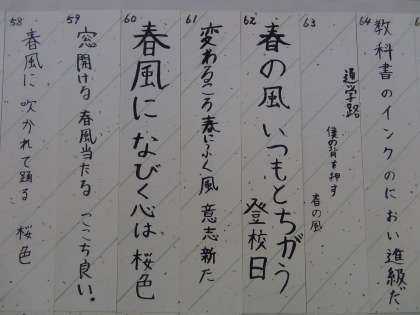 58
春風に 吹かれて踊る 桜色
59
窓開ける 春風当たる ここち良い。
60
春風に なびく心は 桜色
61
変わるころ 春にふく風 意志新た
62
春の風 いつもとちがう
登校日
63
通学路
僕の背を押す
春の風
64
教科書のインクのにおい進級だ